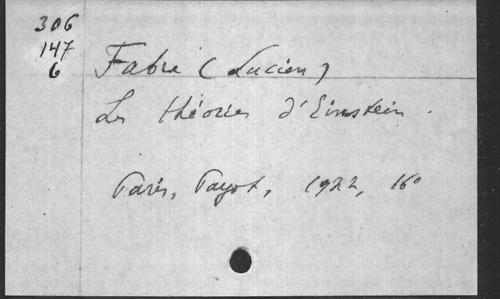 306
147
6
Fabre (Lucien)
Les théories d'Einstein.
Paris, Payot, 1922, 16°